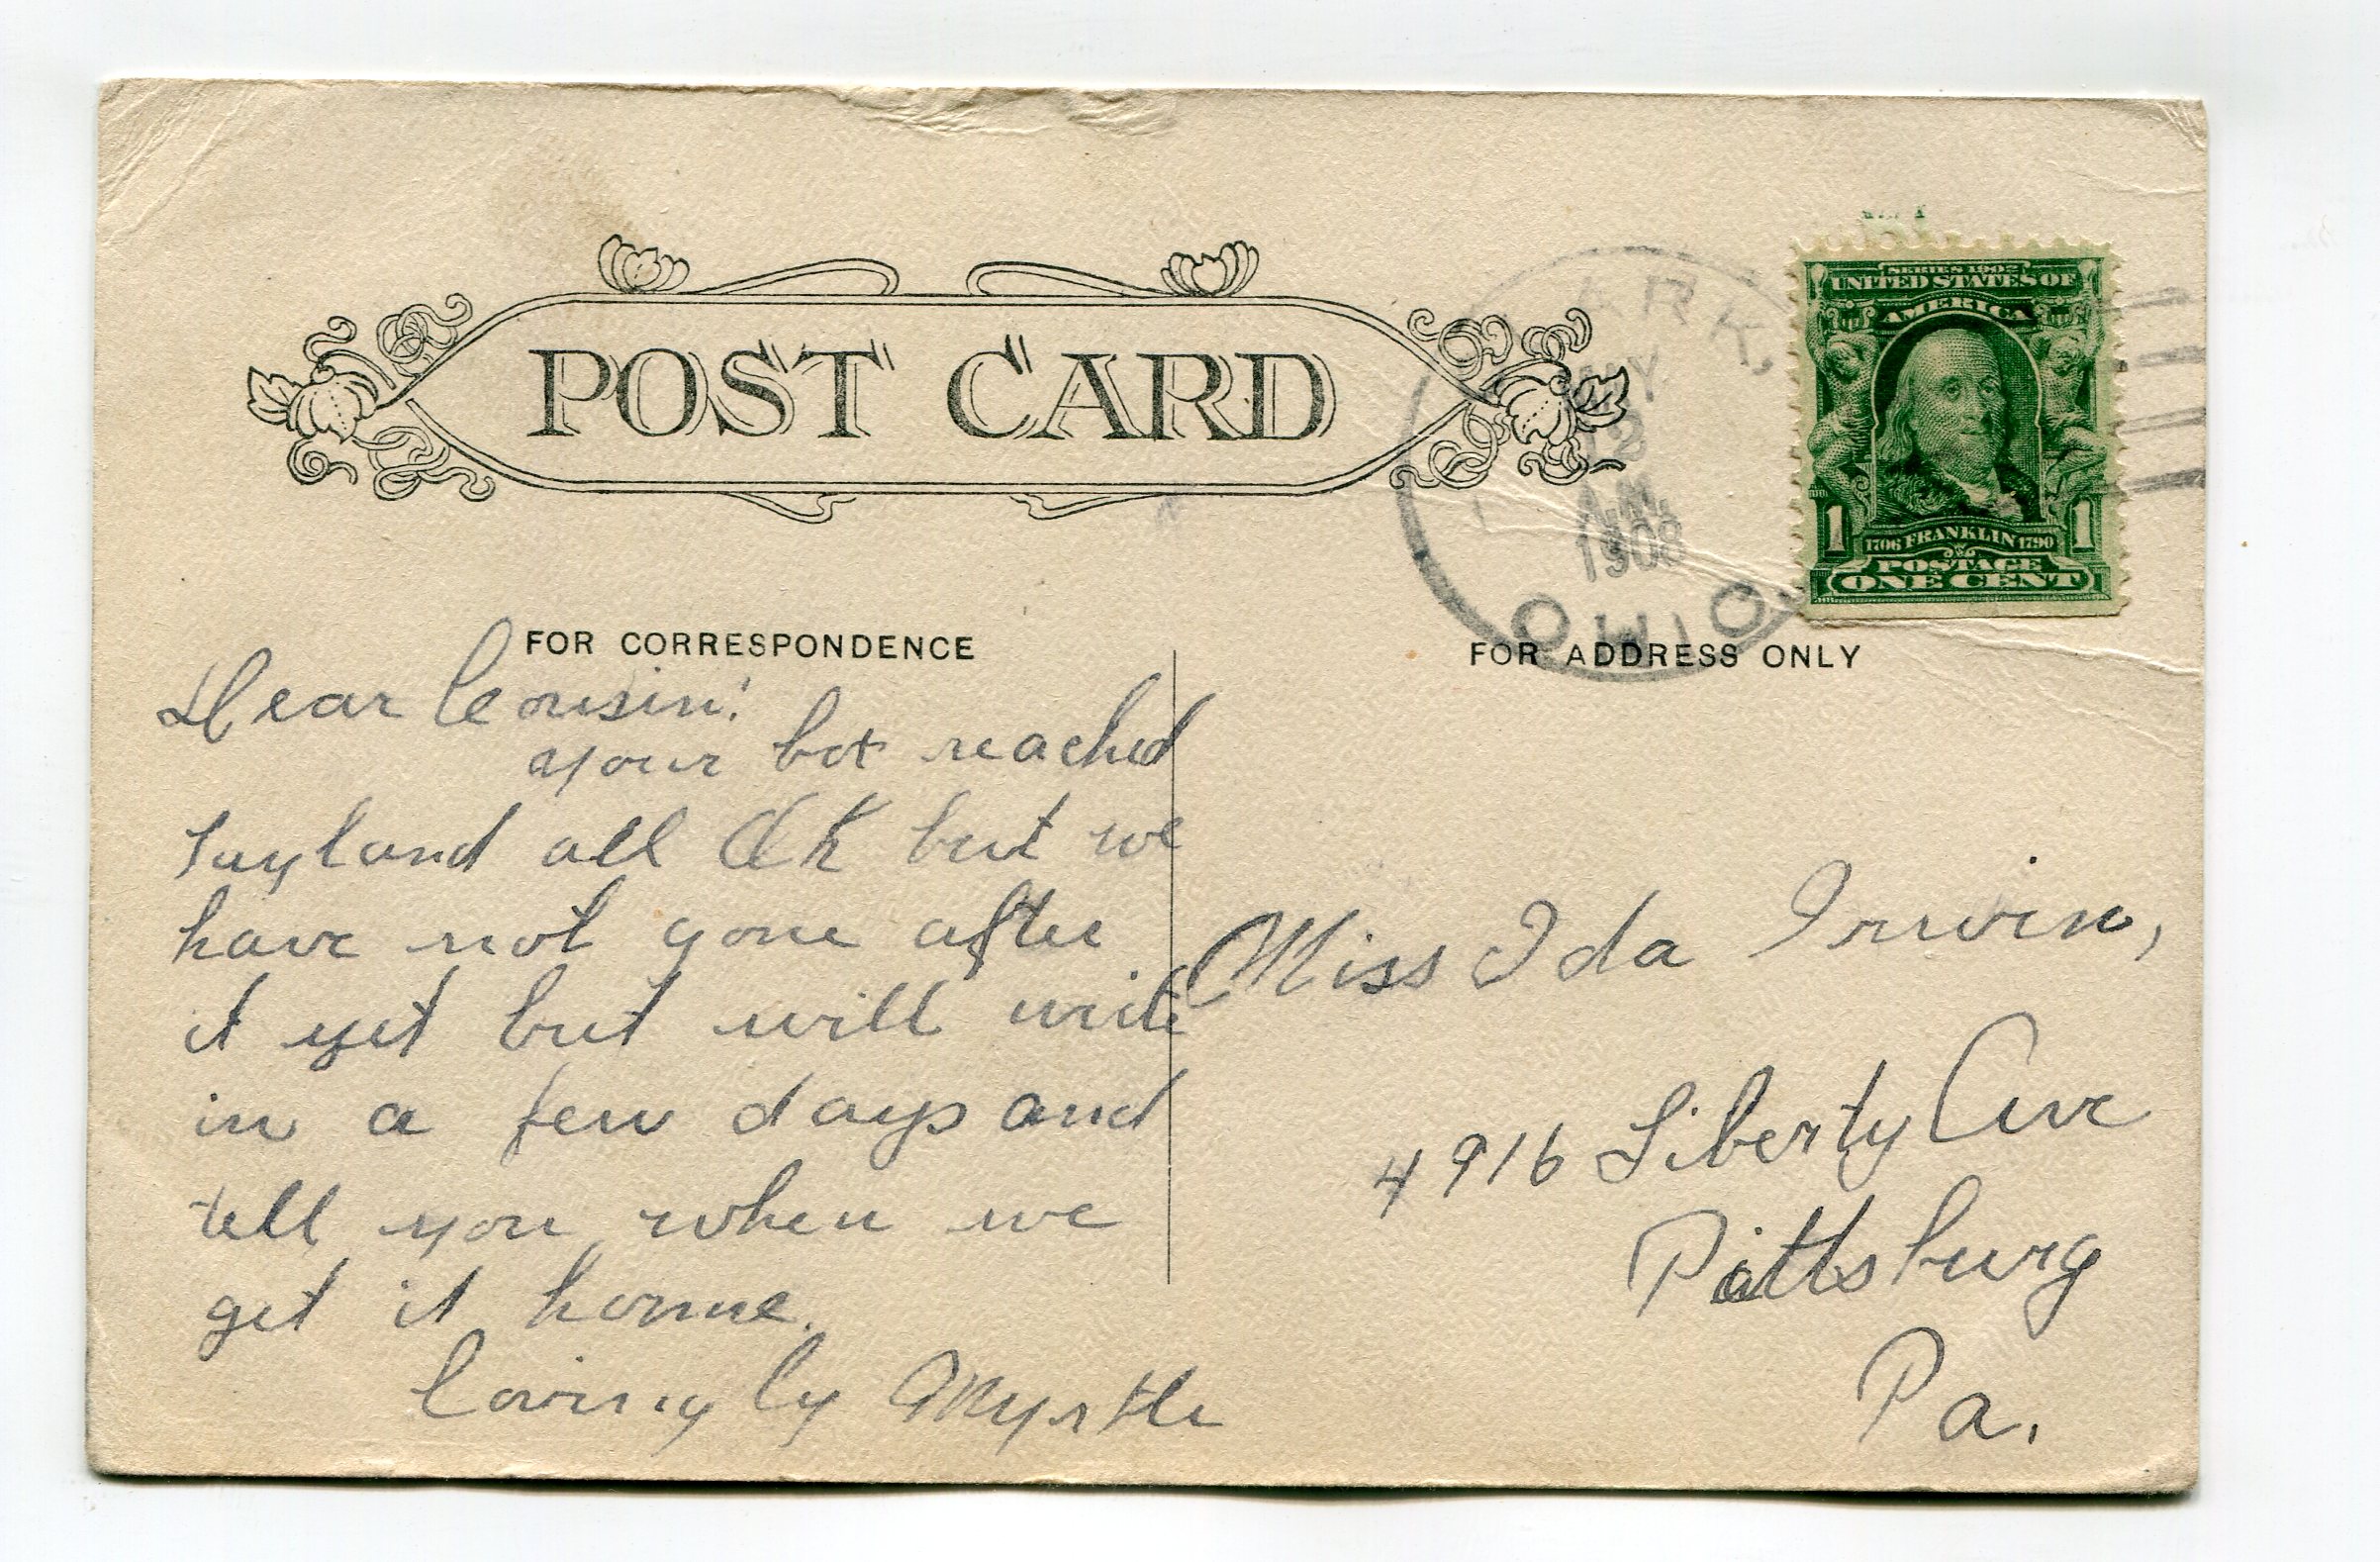 POST CARD
ARK,
MY
12
A.M.
1908
OHIO
SERIES 1902
UNITED STATES OF
AMERICA
1 1706 FRANKLIN 1790 1
POSTAGE
ONE CENT
FOR CORRESPONDENCE
Dear Cousin:
your box reached
all OK but we
have not gone after
it yet but will write
in a few days and
tell you when we
get it home.
lovingly Myrtle
FOR ADDRESS ONLY
Miss Ida Irwin,
4916 Liberty Ave
Pittsburg
Pa.